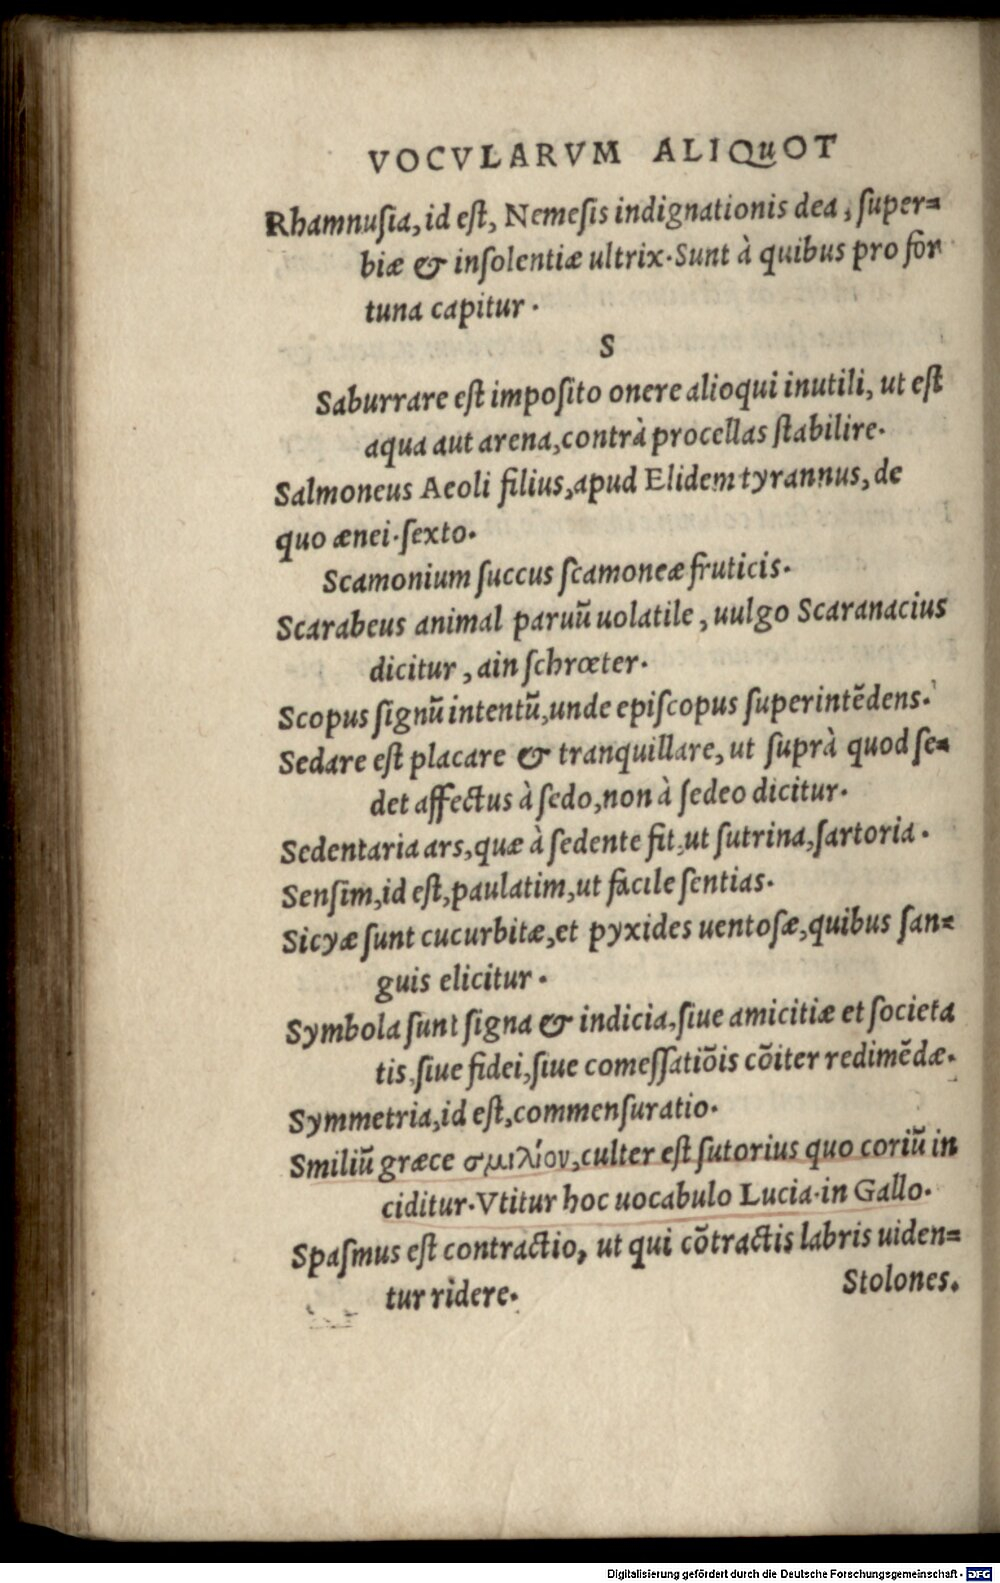 VOCVLARVM ALIQuOT
Rhamnuſia, id eſt, Nemeſis indignationis dea, ſuper=
biæ & inſolentiæ ultrix. Sunt à quibus pro for
tuna capitur.
S
Saburrare eſt impoſito onere alioqui inutili, ut eſt
aqua aut arena, contrà procellas ſtabilire.
Salmoneus Aeoli filius, apud Elidem tyrannus, de
quo ænei. ſexto.
Scamonium ſuccus ſcamoneæ fruticis.
Scarabeus animal paruũ uolatile, uulgo Scaranacius
dicitur, ain ſchrœter.
Scopus ſignũ intentũ, unde epiſcopus ſuperintẽdens.
Sedare eſt placare & tranquillare, ut ſuprà quod ſe=
det affectus à ſedo, non à ſedeo dicitur.
Sedentaria ars, quæ à ſedente fit, ut ſutrina, ſartoria.
Senſim, id eſt, paulatim, ut facile ſentias.
Sicyæ ſunt cucurbitæ, et pyxides uentoſæ, quibus ſan=
guis elicitur.
Symbola ſunt ſigna & indicia, ſiue amicitiæ et ſocieta
tis, ſiue fidei, ſiue comeſſatiõis cõiter redimẽdæ.
Symmetria, id eſt, commenſuratio.
Smiliũ græce σμιλίον, culter eſt ſutorius quo coriũ in
ciditur. Vtitur hoc uocabulo Lucia. in Gallo.
Spaſmus eſt contractio, ut qui cõtractis labris uiden=
tur ridere.
Stolones.
Digitalisierung gefördert durch die Deutsche Forschungsgemeinschaft - DFG